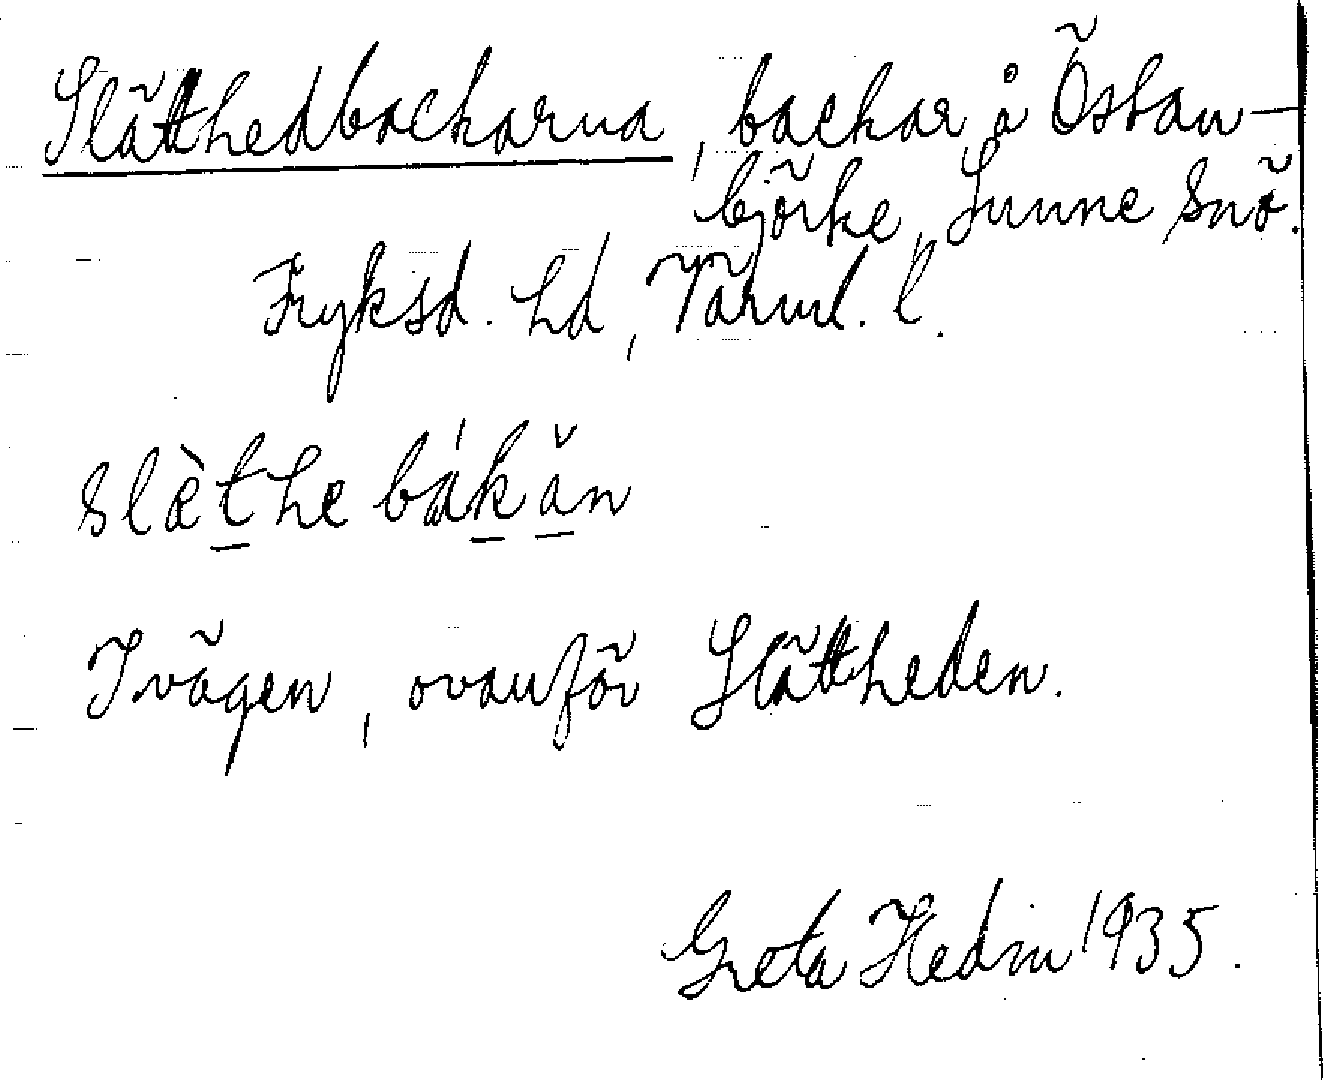 Slätthedbackarna, backar å Östan-
björke, Sunne snö.
Fryksd. hd, Värml. l.
slèthe bákăn
I vägen, ovanför Slättheden.
Greta Hedin 1935.